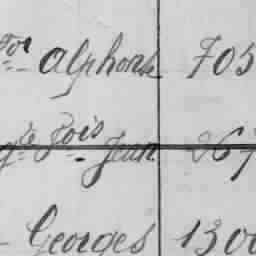 Alphonse 705
fois Jean 267
Georges 1300